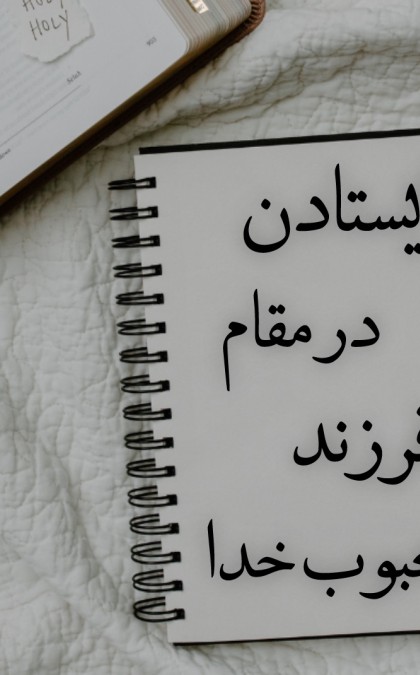 HOLY
HOLY
یستادن
در مقام
فرزند
حبوب خدا